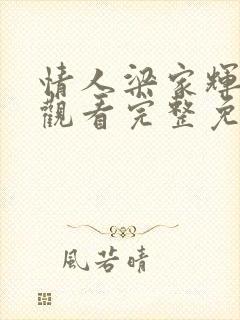 情人梁家輝
觀看完整免
風若晴